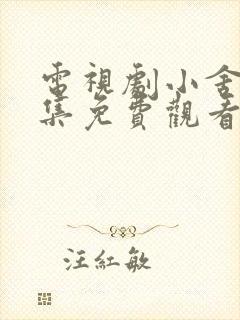 電視劇小舍
集免費觀看
汪紅敏